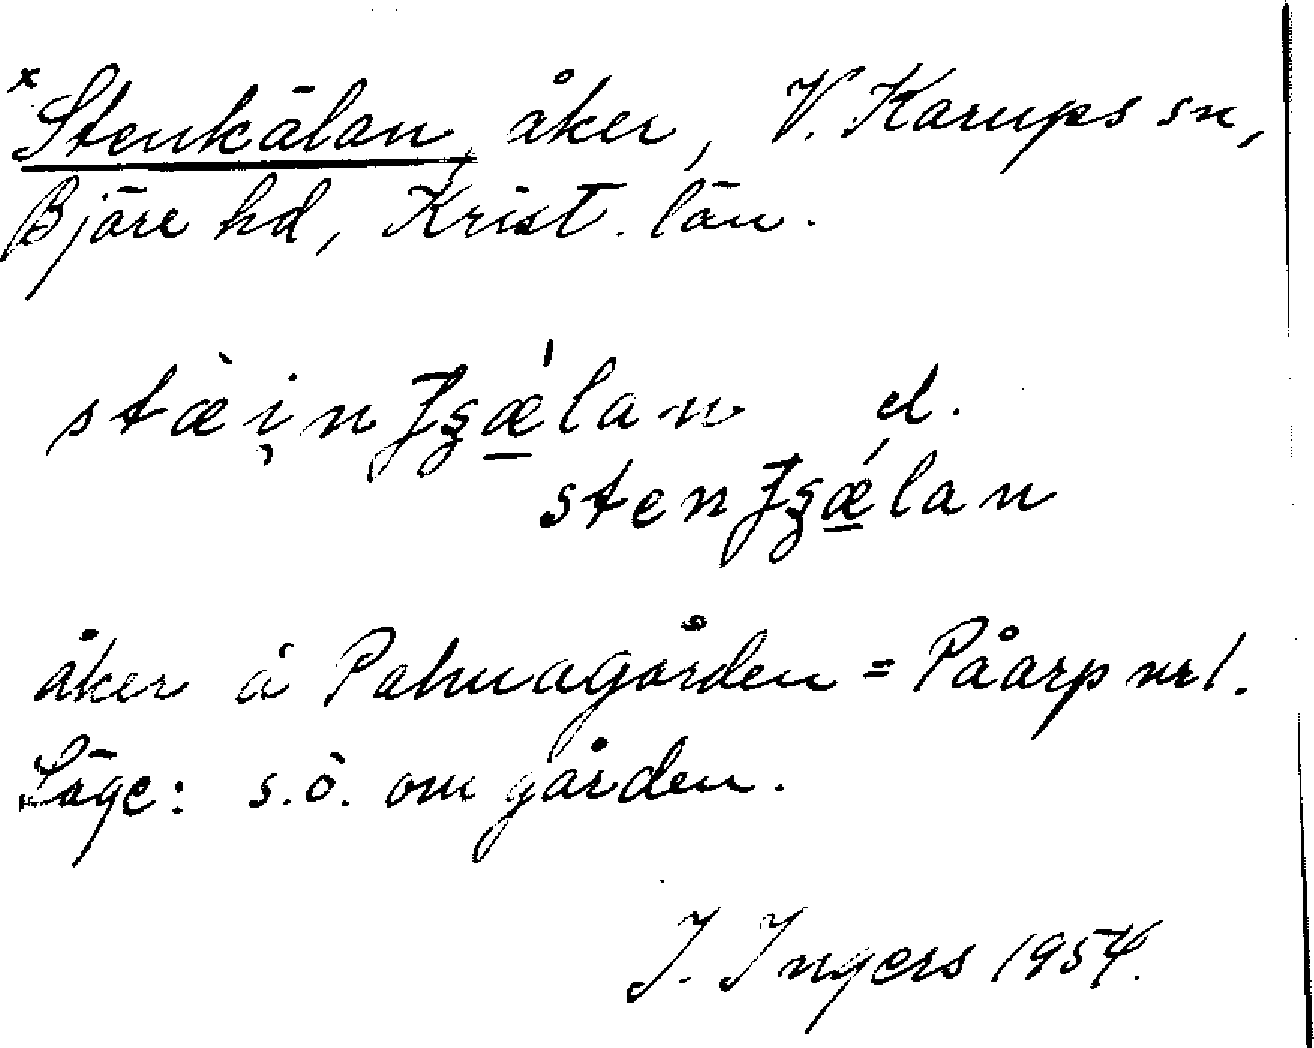 x Stenkälan, åker, V. Karups sn,
Bjäre hd, Krist. län.
åker å Palmagården = Påarp nr 1.
Läge: s.ö. om gården.
I. Ingers 1954.